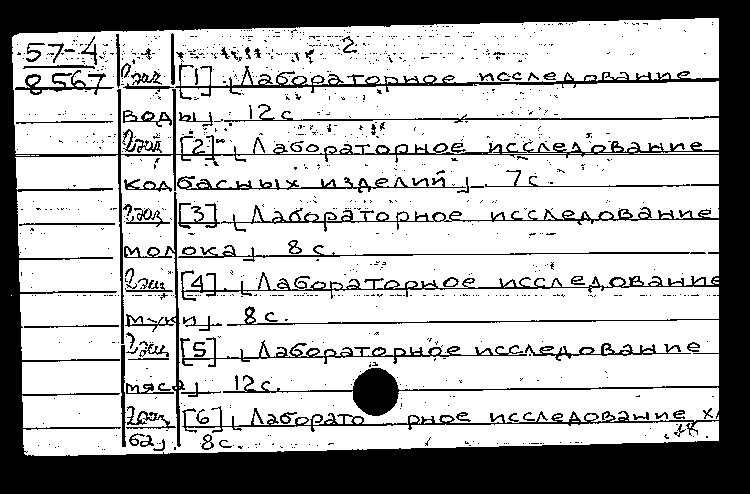 2
57-4 2 экз [1] ⌊Лабораторное исследование
8567
воды⌋. 12 с
2 экз [2] ⌊Лабораторное исследование
колбасных изделий⌋. 7 с.
2 экз [3]. ⌊Лабораторное исследование
молока⌋ 8 с.
2 экз [4]. ⌊Лабораторное исследование
муки⌋. 8 с.
2 экз [5]. ⌊Лабораторное исследование
мяса⌋ 12 с.
2 экз [6] ⌊Лаборато рное исследование хл
ба⌋. 8 с.